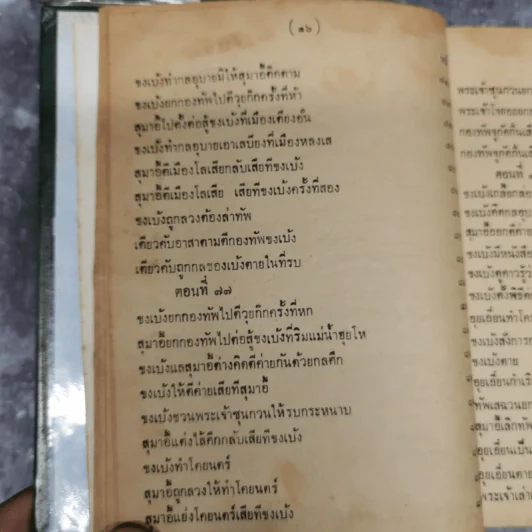 (๑๖)
ขงเบ้งทำกลอุบายมิให้สุมาอี้ติดตาม
ขงเบ้งยกกองทัพไปตีวุยก๊กครั้งที่ห้า
สุมาอี้ไปตั้งต่อสู้ขงเบ้งที่เมืองเตียงอัน
ขงเบ้งทำกลอุบายเอาเสบียงที่เมืองหลงเส
สุมาอี้ตีเมืองโลเสียกลับเสียทีขงเบ้ง
สุมาอี้ตีเมืองโลเสีย เสียทีขงเบ้งครั้งที่สอง
ขงเบ้งถูกลวงต้องล่าทัพ
เตียวคับอาสาตามตีกองทัพขงเบ้ง
เตียวคับถูกกลของเบ้งตายในที่รบ
ตอนที่ ๗๗
ขงเบ้งยกกองทัพไปตีวุยก๊กครั้งที่หก
สุมาอี้ยกกองทัพไปต่อสู้ขงเบ้งที่ริมแม่น้ำฮุยโห
ขงเบ้งแลสุมาอี้ต่างคิดตีค่ายกันด้วยกลศึก
ขงเบ้งให้ตีค่ายเสียทีสุมาอี้
ขงเบ้งชวนพระเจ้าซุนกวนให้รบกระหนาบ
สุมาอี้แต่งไส้ศึกกลับเสียทีขงเบ้ง
ขงเบ้งทำโคยนตร์
สุมาอี้ถูกลวงให้ทำโคยนตร์
สุมาอี้แย่งโคยนตร์เสียทีขงเบ้ง
พระเจ้าซุนกวนยก
กองทัพจูกัดกิ๋นเสีย
ตอนที่
ขงเบ้งคิดกลอุบ
สุมาอี้ออกตีค่าย
ขงเบ้งมีหนังสือ
ขงเบ้งดูดาวรู้ว่
ขงเบ้งตั้งพิธีต่อ
อุยเอี๋ยนทำโค
ขงเบ้งสั่งการก
ขงเบ้งตาย
อุยเอี๋ยนกำเริ
ทัพเสฉวนยก
สุมาอี้เลิกทัพ
อุยเอี๋ยนเป็น
อุยเอี๋ยนตาย
พระเจ้าเล่า